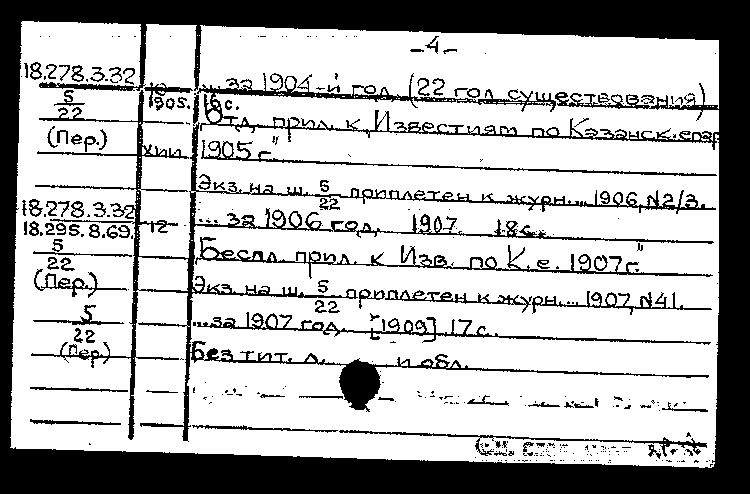 -4-
18.278.3.32 ... за 1904-й год (22 год существования)
5/22 1905. 16 с.
Отд. прил. к „Известиям по Казанск. епар
(Пер.) 1905 г."
Экз. на ш. 5/22 приплетен к журн... 1906, N2/3.
18.278.3.32 ... за 1906 год, 1907. 18 с.
18.295.8.69. 12
5/22 Беспл. прил. к Изв. по К. е. 1907 г."
(Пер.) Экз. на ш. 5/22 приплетен к журн... 1907, N41.
5/22 ... за 1907 год. [1909] 17 с.
(Пер) Без тит. л. и обл.
См.